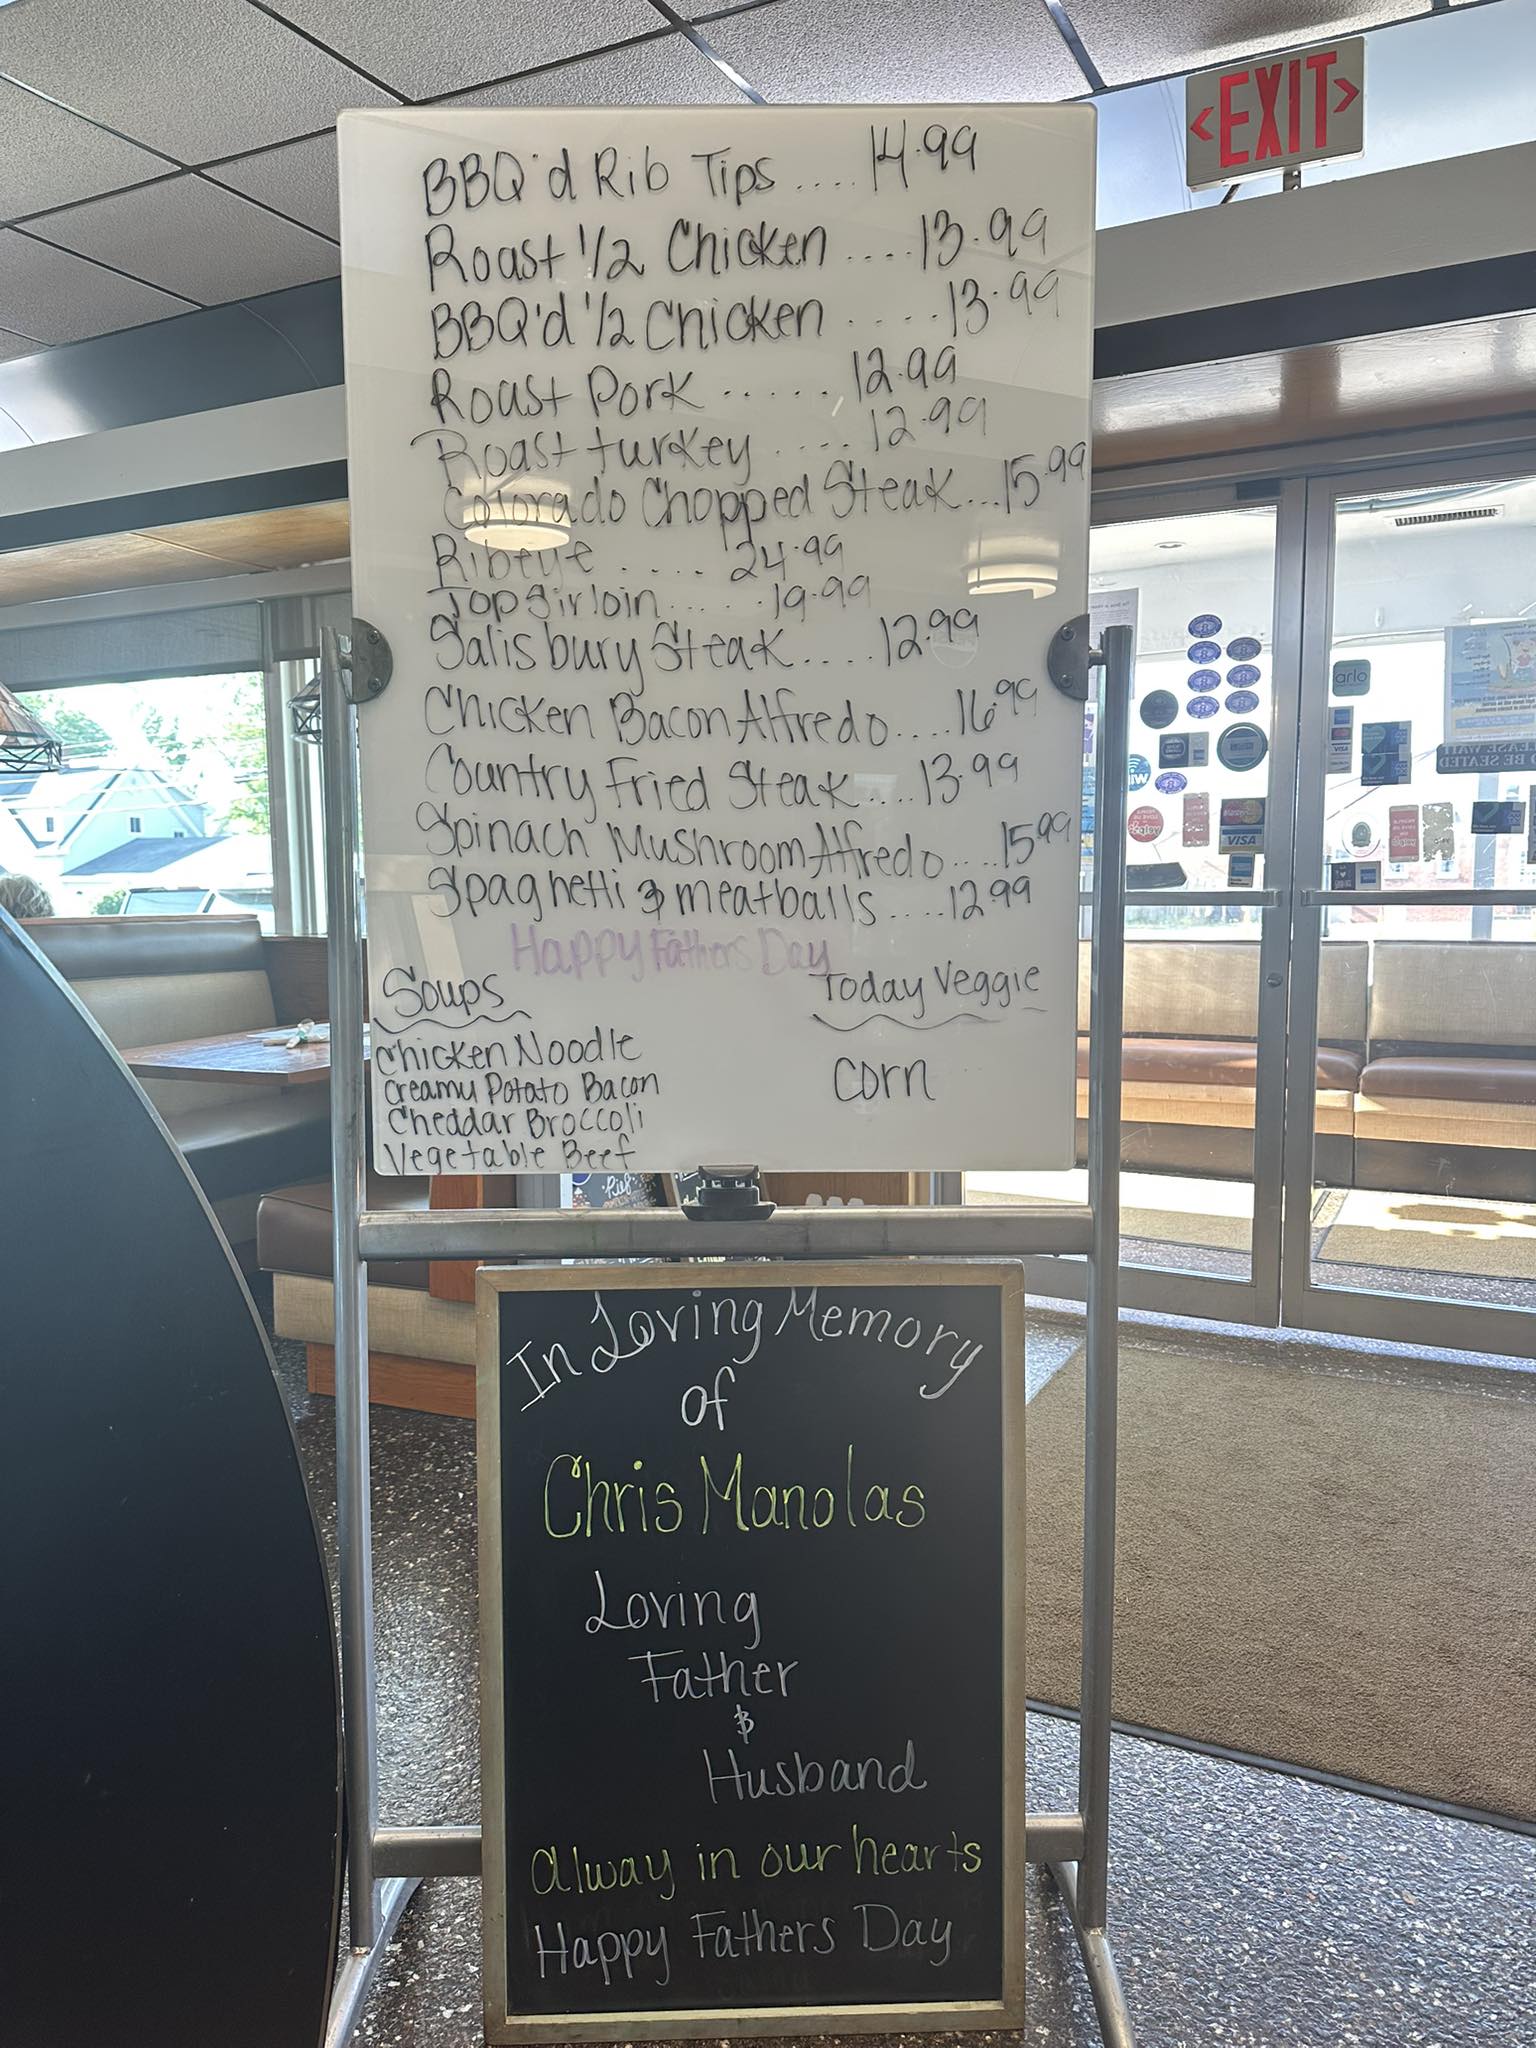 <EXIT>
BBQ'd Rib Tips .... 14.99
Roast 1/2 Chicken .... 13.99
BBQ'd 1/2 Chicken .... 13.99
Roast Pork ...... 12.99
Roast turkey .... 12.99
Colorado Chopped Steak ... 15.99
Ribeye ..... 24.99
Top Sirloin ..... 19.99
Salisbury Steak .... 12.99
Chicken Bacon Alfredo .... 16.99
Country Fried Steak .... 13.99
Spinach Mushroom Alfredo .... 15.99
Spaghetti & meatballs .... 12.99
Happy Fathers Day
Soups
Chicken Noodle
Creamy Potato Bacon
Cheddar Broccoli
Vegetable Beef
Today Veggie
Corn
In Loving Memory
of
Chris Manolas
Loving
Father
&
Husband
Alway in our hearts
Happy Fathers Day
arlo
VISA
VISA
yelp
PLEASE WAIT
TO BE SEATED